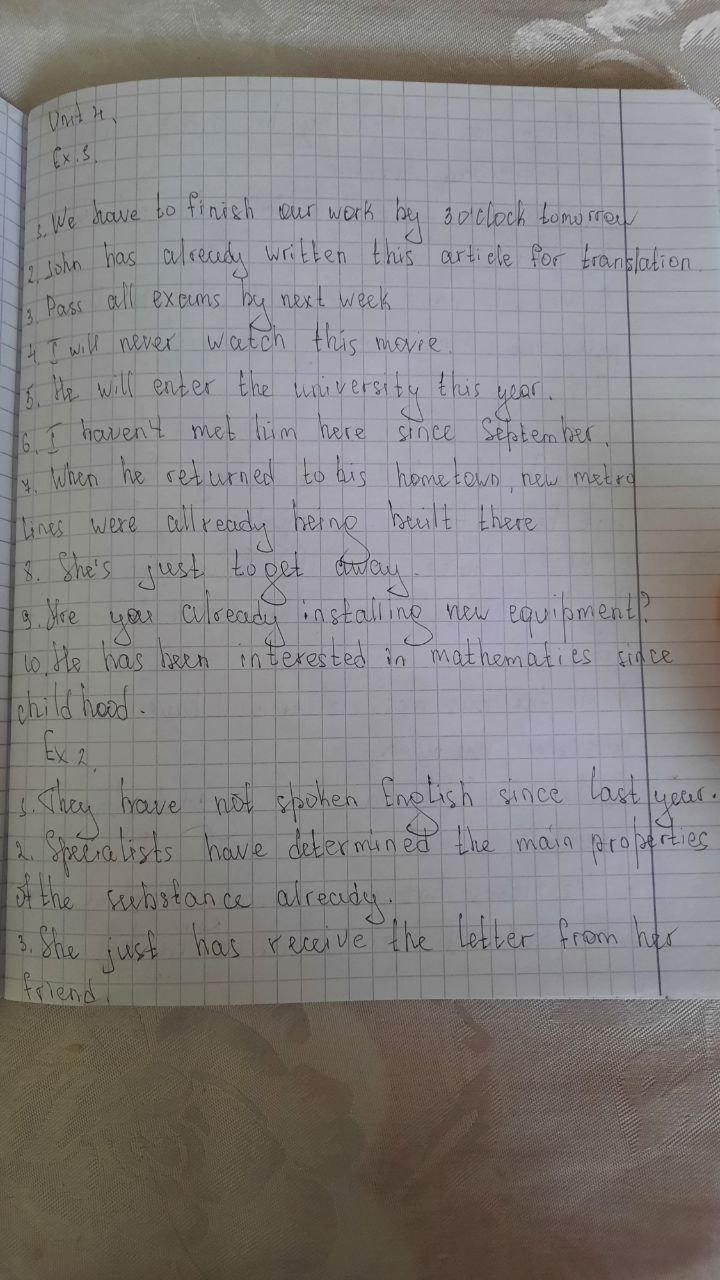 Unit 4.
Ex. 3.
1. We have to finish our work by 3 o'clock tomorrow
2. John has already written this article for translation.
3. Pass all exams by next week
4. I will never watch this movie.
5. He will enter the university this year.
6. I haven't met him here since September.
7. When he returned to his hometown, new metro
lines were allready being built there
8. She's just to get away.
9. Are you already installing new equipment?
10. He has been interested in mathematics since
childhood.
Ex 2.
1. They have not spoken English since last year.
2. Specialists have determined the main properties
of the substance already.
3. She just has receive the letter from her
friend.